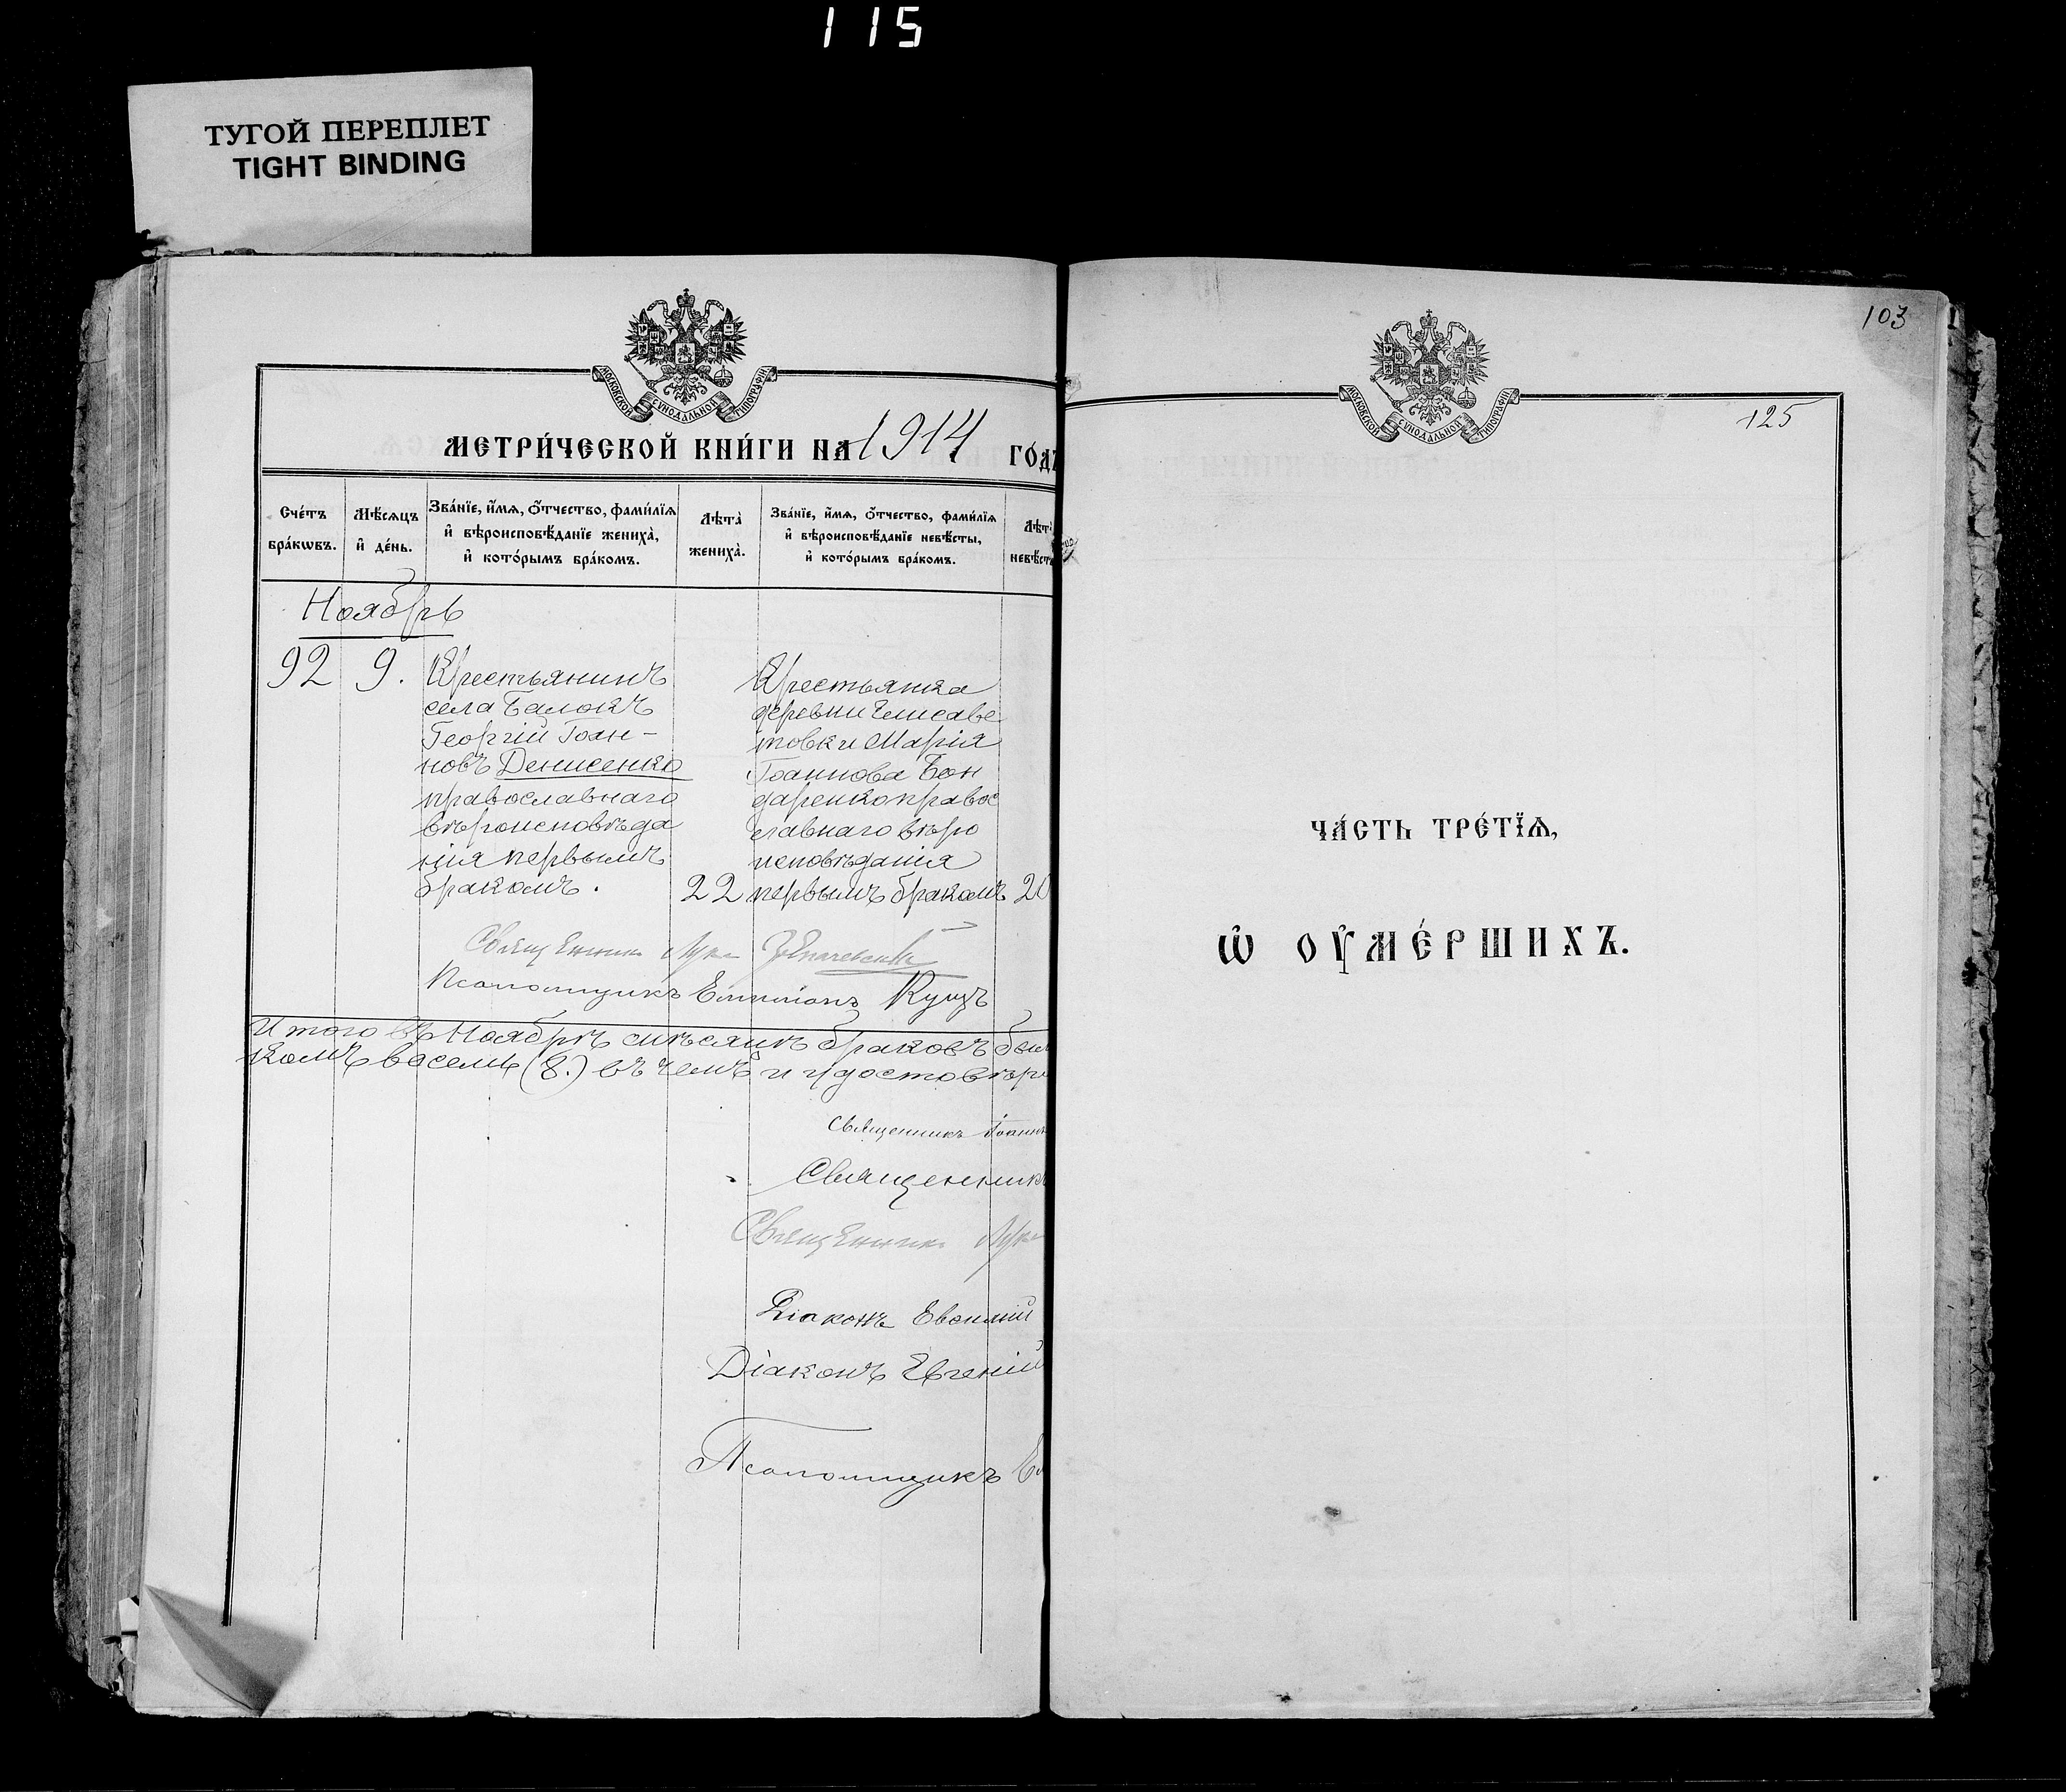 115
ТУГОЙ ПЕРЕПЛЕТ
TIGHT BINDING
МОСКОВСКОЙ СѴНОДАЛЬНОЙ ТИПОГРАФІИ
МЕТРИ́ЧЕСКОЙ КНИ́ГИ НА 1914 ГО́ДЪ
Сче́тъ бра́кѡвъ.
Мѣ́сѧцъ и҆ де́нь.
Зва́нїе, и҆́мѧ, ѻ҆́тчество, фами́лїѧ и҆ вѣроисповѣ́данїе жениха̀, и҆ кото́рымъ бра́комъ.
Лѣта̀ жениха̀.
Зва́нїе, и҆́мѧ, ѻ҆́тчество, фами́лїѧ и҆ вѣроисповѣ́данїе невѣ́сты, и҆ кото́рымъ бра́комъ.
Лѣта̀ невѣ́ст
Ноябрь
92 9.
Крестьянинъ
села Балокъ
Георгій Іоан-
новъ Денисенко
православнаго
вѣроисповѣда
нія первымъ
бракомъ.
22
Крестьянка
деревни Елисаве
товки Марія
Іоаннова Бон
даренко правос
лавнаго вѣро
исповѣданія
первымъ бракомъ
20
Священникъ Лука
Псаломщикъ Емиліанъ Кущъ
Итого въ Ноябрѣ мѣсяцѣ браковъ
восемь (8.) въ чемъ и удостовѣря
Священникъ Іоаннъ
Священникъ
Священникъ Лука
Діаконъ Евфимій
Діаконъ Евгеній
Псаломщикъ
103
МОСКОВСКОЙ СѴНОДАЛЬНОЙ ТИПОГРАФІИ
125
ЧА́СТЬ ТРЕ́ТЇѦ,
Ѡ҆ ОУ҆МЕ́РШИХЪ.